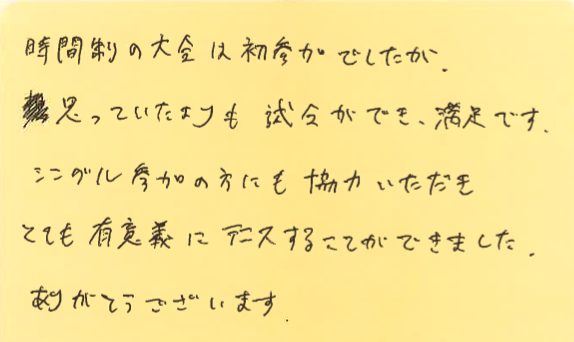 時間制の大会は初参加でしたが、
思っていたよりも試合ができ、満足です。
シングル参加の方にも協力いただき
とても有意義にテニスすることができました。
ありがとうございます。